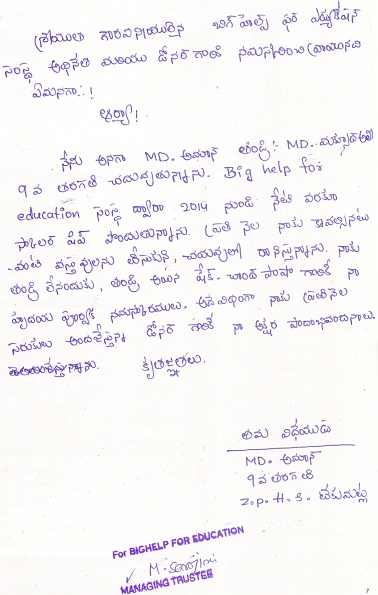 శ్రేయుత గౌరవనీయులైన బిగ్ హెల్ప్ ఫర్ ఎడ్యుకేషన్
సంస్థ అధినేత మరియు డోనర్ గారికి నమస్కరించి వ్రాయునది
ఏమనగా..!
ఆర్యా!
నేను అనగా MD. అమాన్ తండ్రి: MD.
9వ తరగతి చదువుతున్నాను. Big help for
education సంస్థ ద్వారా 2014 నుండి నేటి వరకూ
స్కాలర్ షిప్ పొందుతున్నాను. ప్రతి నెల నాకు కావలసిన
-వంటి వస్తువులను తీసుకుని, చదువులో రాణిస్తున్నాను. నాకు
తండ్రి లేనందుకు, తండ్రి అయిన షేక్. చాంద్ పాషా గారికి నా
హృదయ పూర్వక నమస్కారములు. అదే విధంగా నాకు ప్రతినెల
సరుకులు అందజేస్తున్న డోనర్ గారికి నా అక్షర పాదాభివందనాలు.
కృతజ్ఞతలు.
తమ విధేయుడు
MD. అమాన్
9వ తరగతి
Z.P.H.S. టేకుమట్ల
For BIGHELP FOR EDUCATION
M. Sarojini
MANAGING TRUSTEE